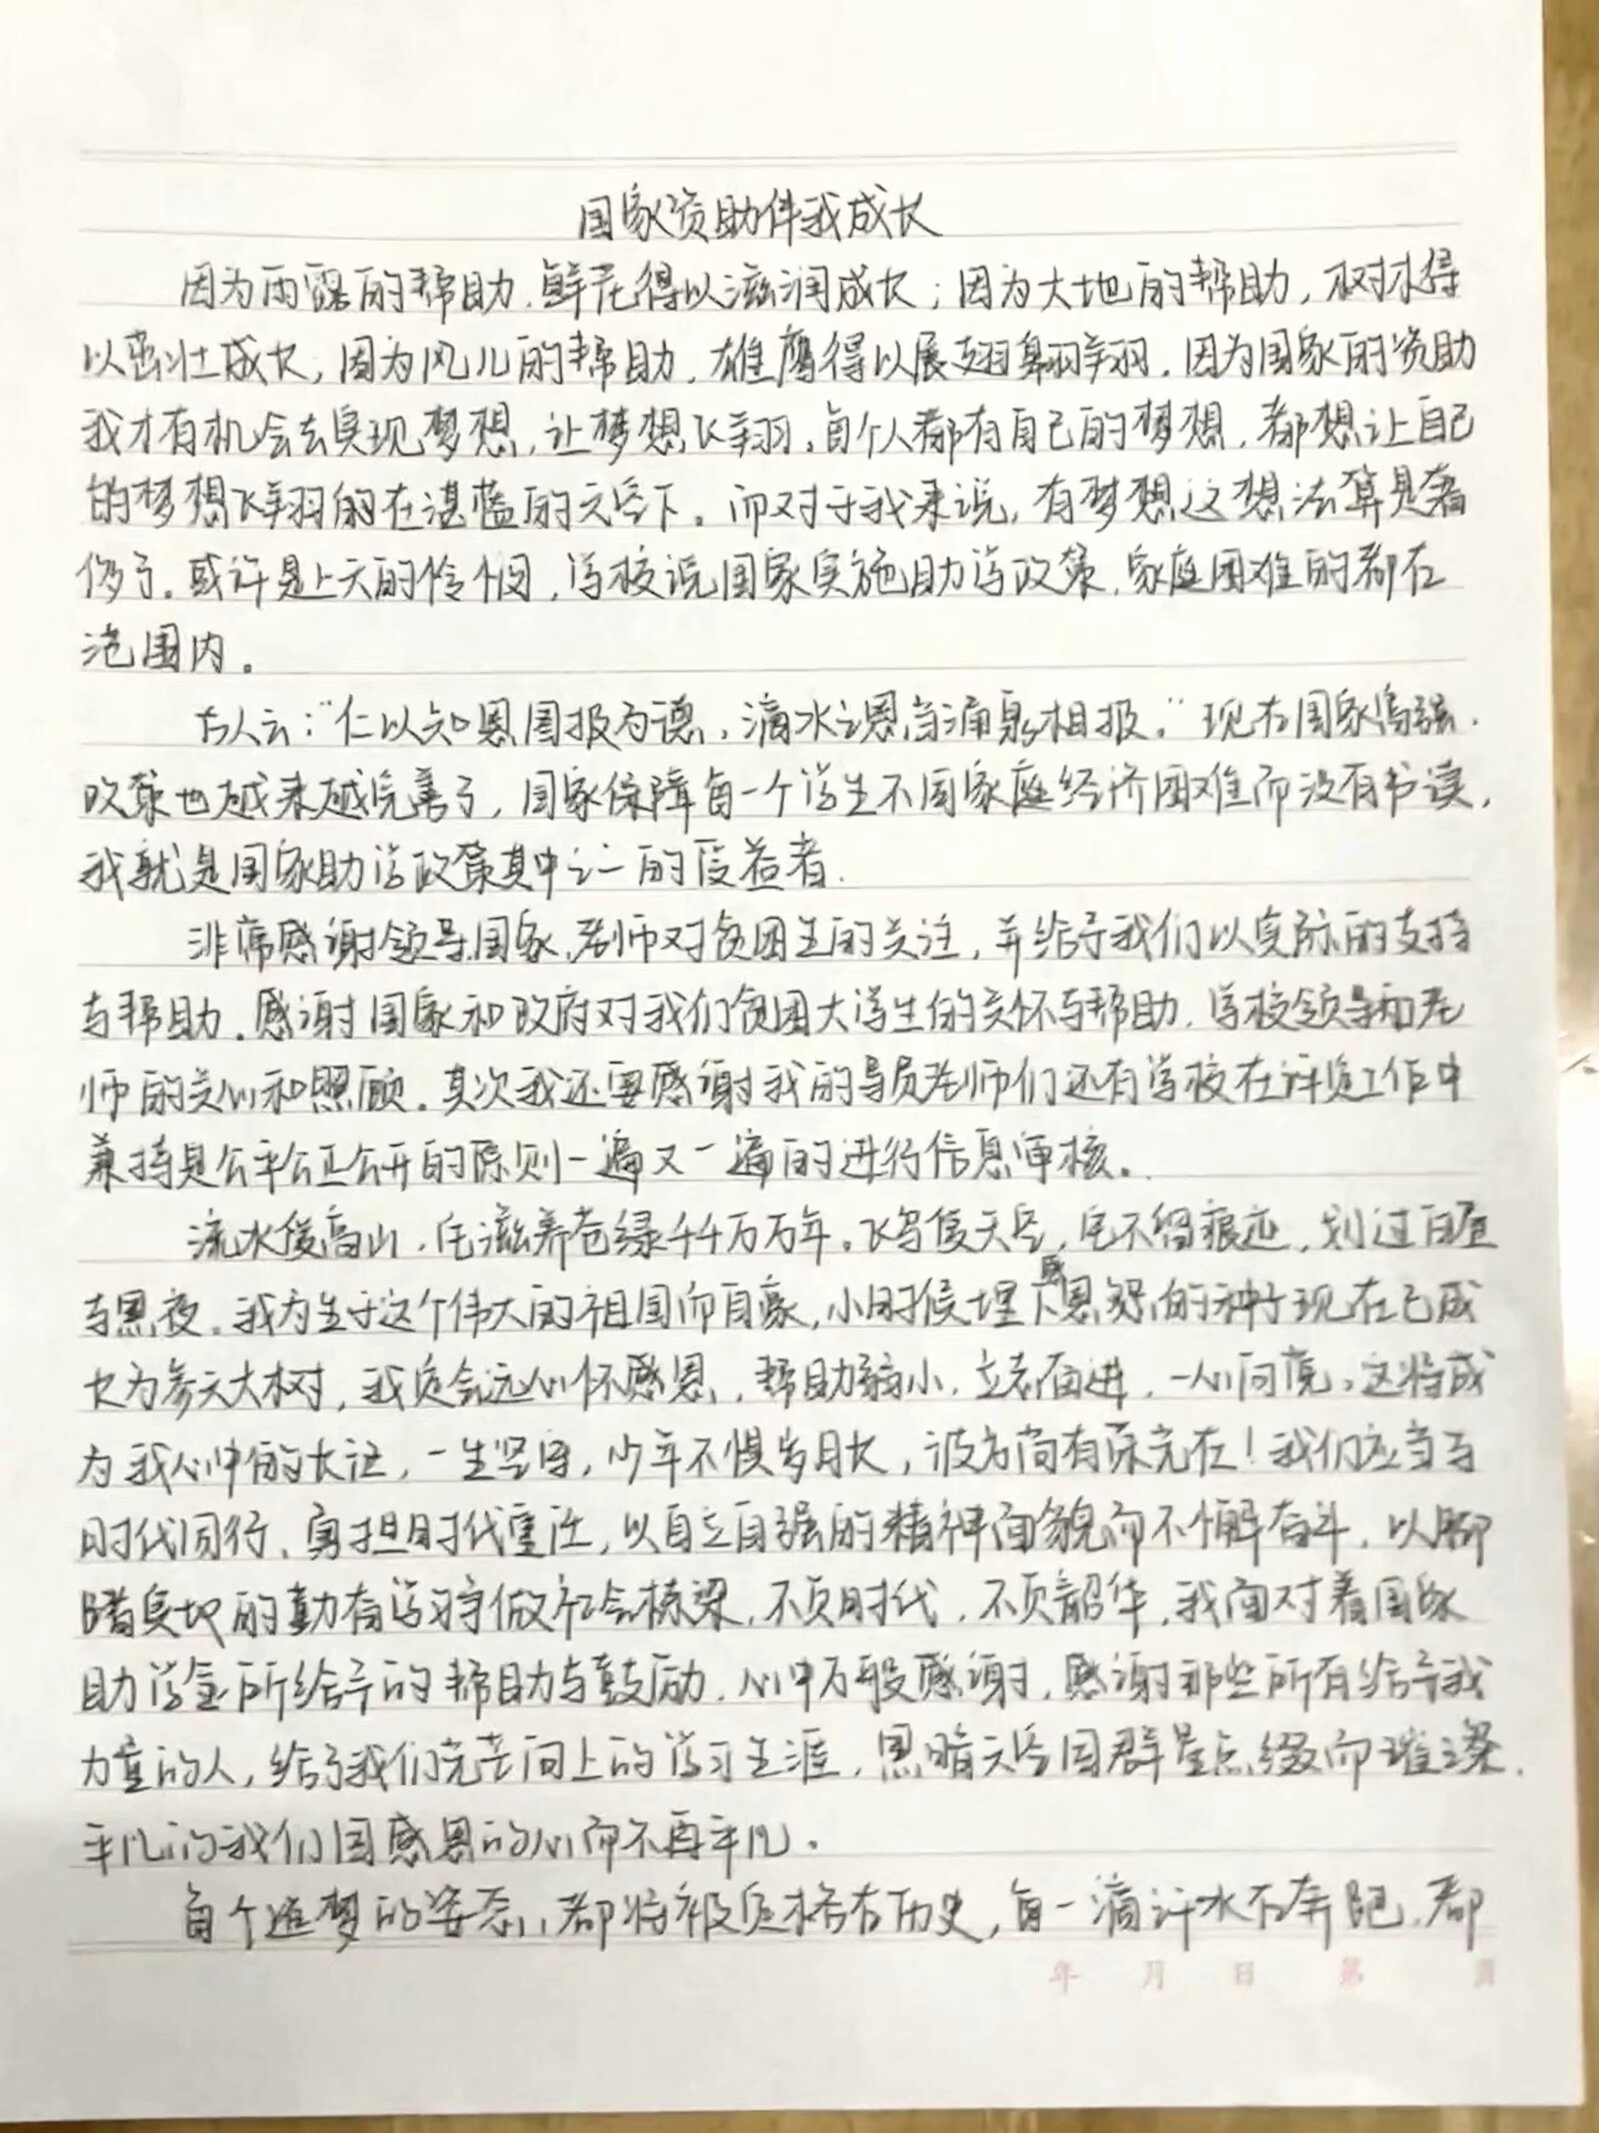 国家资助伴我成长
因为雨露的帮助，鲜花得以滋润成长；因为大地的帮助，树木得
以茁壮成长；因为风儿的帮助，雄鹰得以展翅翱翔，因为国家的资助
我才有机会去实现梦想，让梦想飞翔。每个人都有自己的梦想，都想让自己
的梦想飞翔的在湛蓝的天空下。而对于我来说，有梦想这想法算是奢
侈了。或许是上天的怜悯，学校说国家实施助学政策，家庭困难的都在
范围内。
古人云：“仁以知恩图报为德，滴水之恩当涌泉相报。”现在国家富强，
政策也越来越完善了，国家保障每一个学生不因家庭经济困难而没有书读，
我就是国家助学政策其中之一的受益者.
非常感谢领导国家，老师对贫困生的关注，并给予我们以实际的支持
与帮助。感谢国家和政府对我们贫困大学生的关怀与帮助，学校领导和老
师的关心和照顾。其次我还要感谢我的导员老师们还有学校在评选工作中
兼持是公平公正公开的原则一遍又一遍的进行信息审核。
流水侵高山，它滋养苍绿千千万万年。飞鸟侵天空，它不留痕迹，划过白昼
与黑夜。我为生于这个伟大的祖国而自豪，小时候埋下感恩的种子现在已成
长为参天大树，我定会永远心怀感恩，帮助弱小，立志奋进，一心向党。这将成
为我心中的长征，一生坚守，少年不惧岁月长，彼方尚有荣光在！我们应当与
时代同行、勇担时代重任，以自立自强的精神面貌而不懈奋斗，以脚
踏实地的勤奋学习争做社会栋梁，不负时代，不负韶华，我面对着国家
助学金所给予的帮助与鼓励，心中万般感谢，感谢那些所有给予我
力量的人，给予我们光芒向上的学习生涯，黑暗天空因群星点缀而璀璨，
平凡的我们因感恩的心而不再平凡。
每个追梦的姿态，都将被定格在历史，每一滴汗水在奔跑，都
年 月 日 第 页